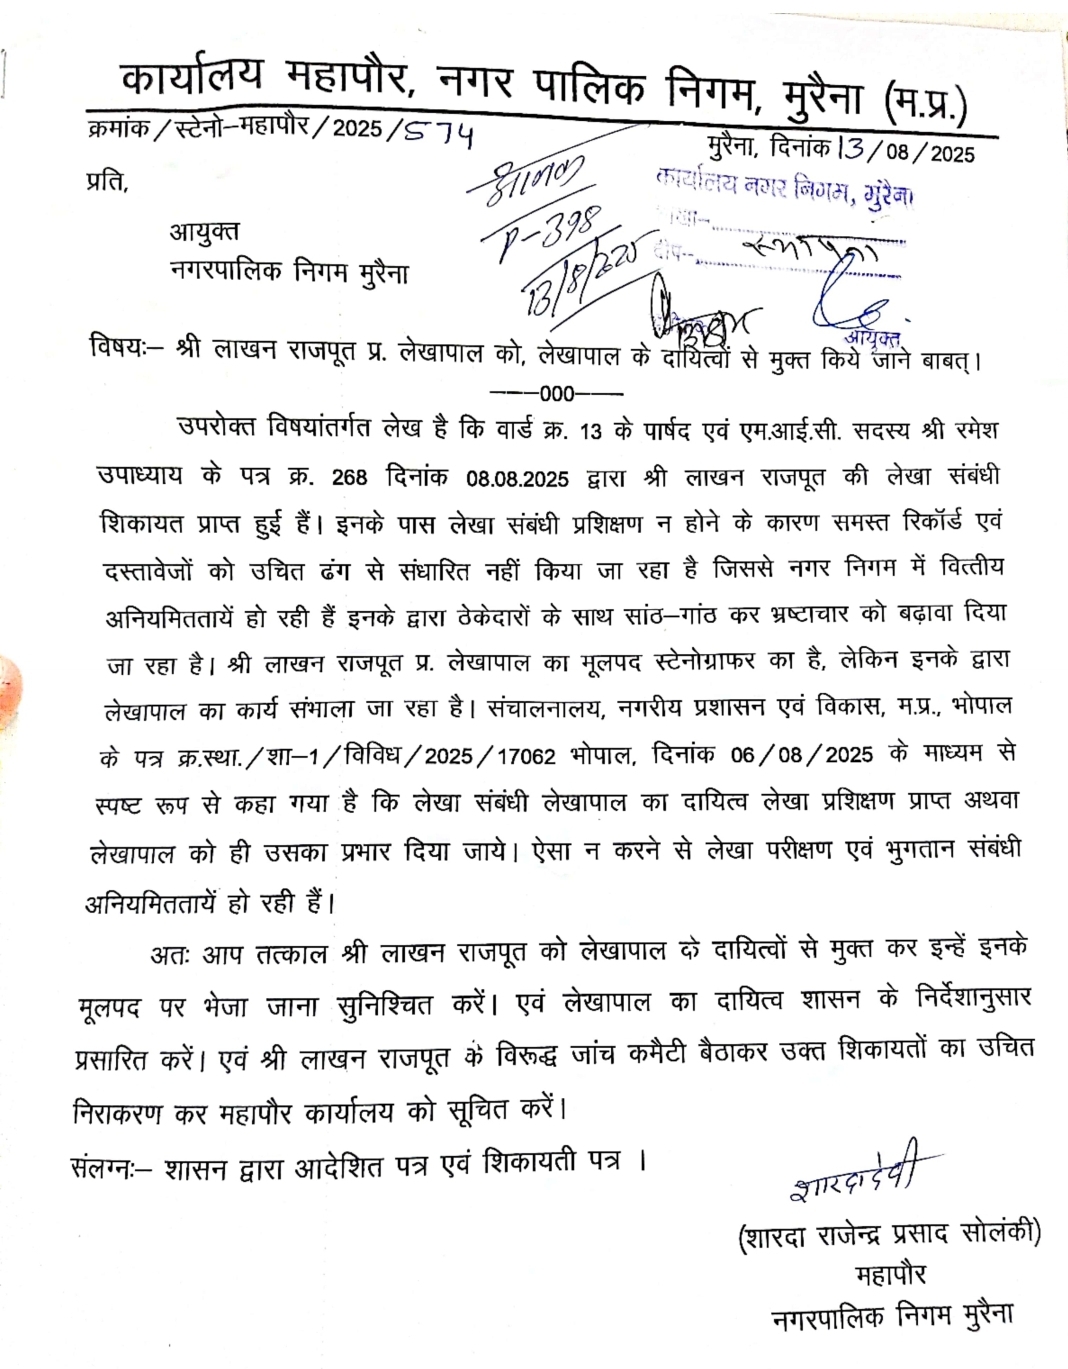 कार्यालय महापौर, नगर पालिक निगम, मुरैना (म.प्र.)
क्रमांक/स्टेनो–महापौर/2025/574
मुरैना, दिनांक 13/08/2025
प्रति,
आवक
P-398
13/8/2025
कार्यालय नगर निगम, मुरैना
स्थापना
आयुक्त
आयुक्त
नगरपालिक निगम मुरैना
विषयः– श्री लाखन राजपूत प्र. लेखापाल को, लेखापाल के दायित्वों से मुक्त किये जाने बाबत्।
–––000–––
उपरोक्त विषयांतर्गत लेख है कि वार्ड क्र. 13 के पार्षद एवं एम.आई.सी. सदस्य श्री रमेश
उपाध्याय के पत्र क्र. 268 दिनांक 08.08.2025 द्वारा श्री लाखन राजपूत की लेखा संबंधी
शिकायत प्राप्त हुई हैं। इनके पास लेखा संबंधी प्रशिक्षण न होने के कारण समस्त रिकॉर्ड एवं
दस्तावेजों को उचित ढंग से संधारित नहीं किया जा रहा है जिससे नगर निगम में वित्तीय
अनियमिततायें हो रही हैं इनके द्वारा ठेकेदारों के साथ सांठ–गांठ कर भ्रष्टाचार को बढ़ावा दिया
जा रहा है। श्री लाखन राजपूत प्र. लेखापाल का मूलपद स्टेनोग्राफर का है, लेकिन इनके द्वारा
लेखापाल का कार्य संभाला जा रहा है। संचालनालय, नगरीय प्रशासन एवं विकास, म.प्र., भोपाल
के पत्र क्र.स्था./शा–1/विविध/2025/17062 भोपाल, दिनांक 06/08/2025 के माध्यम से
स्पष्ट रूप से कहा गया है कि लेखा संबंधी लेखापाल का दायित्व लेखा प्रशिक्षण प्राप्त अथवा
लेखापाल को ही उसका प्रभार दिया जाये। ऐसा न करने से लेखा परीक्षण एवं भुगतान संबंधी
अनियमिततायें हो रही हैं।
अतः आप तत्काल श्री लाखन राजपूत को लेखापाल के दायित्वों से मुक्त कर इन्हें इनके
मूलपद पर भेजा जाना सुनिश्चित करें। एवं लेखापाल का दायित्व शासन के निर्देशानुसार
प्रसारित करें। एवं श्री लाखन राजपूत के विरूद्ध जांच कमैटी बैठाकर उक्त शिकायतों का उचित
निराकरण कर महापौर कार्यालय को सूचित करें।
संलग्नः– शासन द्वारा आदेशित पत्र एवं शिकायती पत्र ।
शारदा देवी
(शारदा राजेन्द्र प्रसाद सोलंकी)
महापौर
नगरपालिक निगम मुरैना